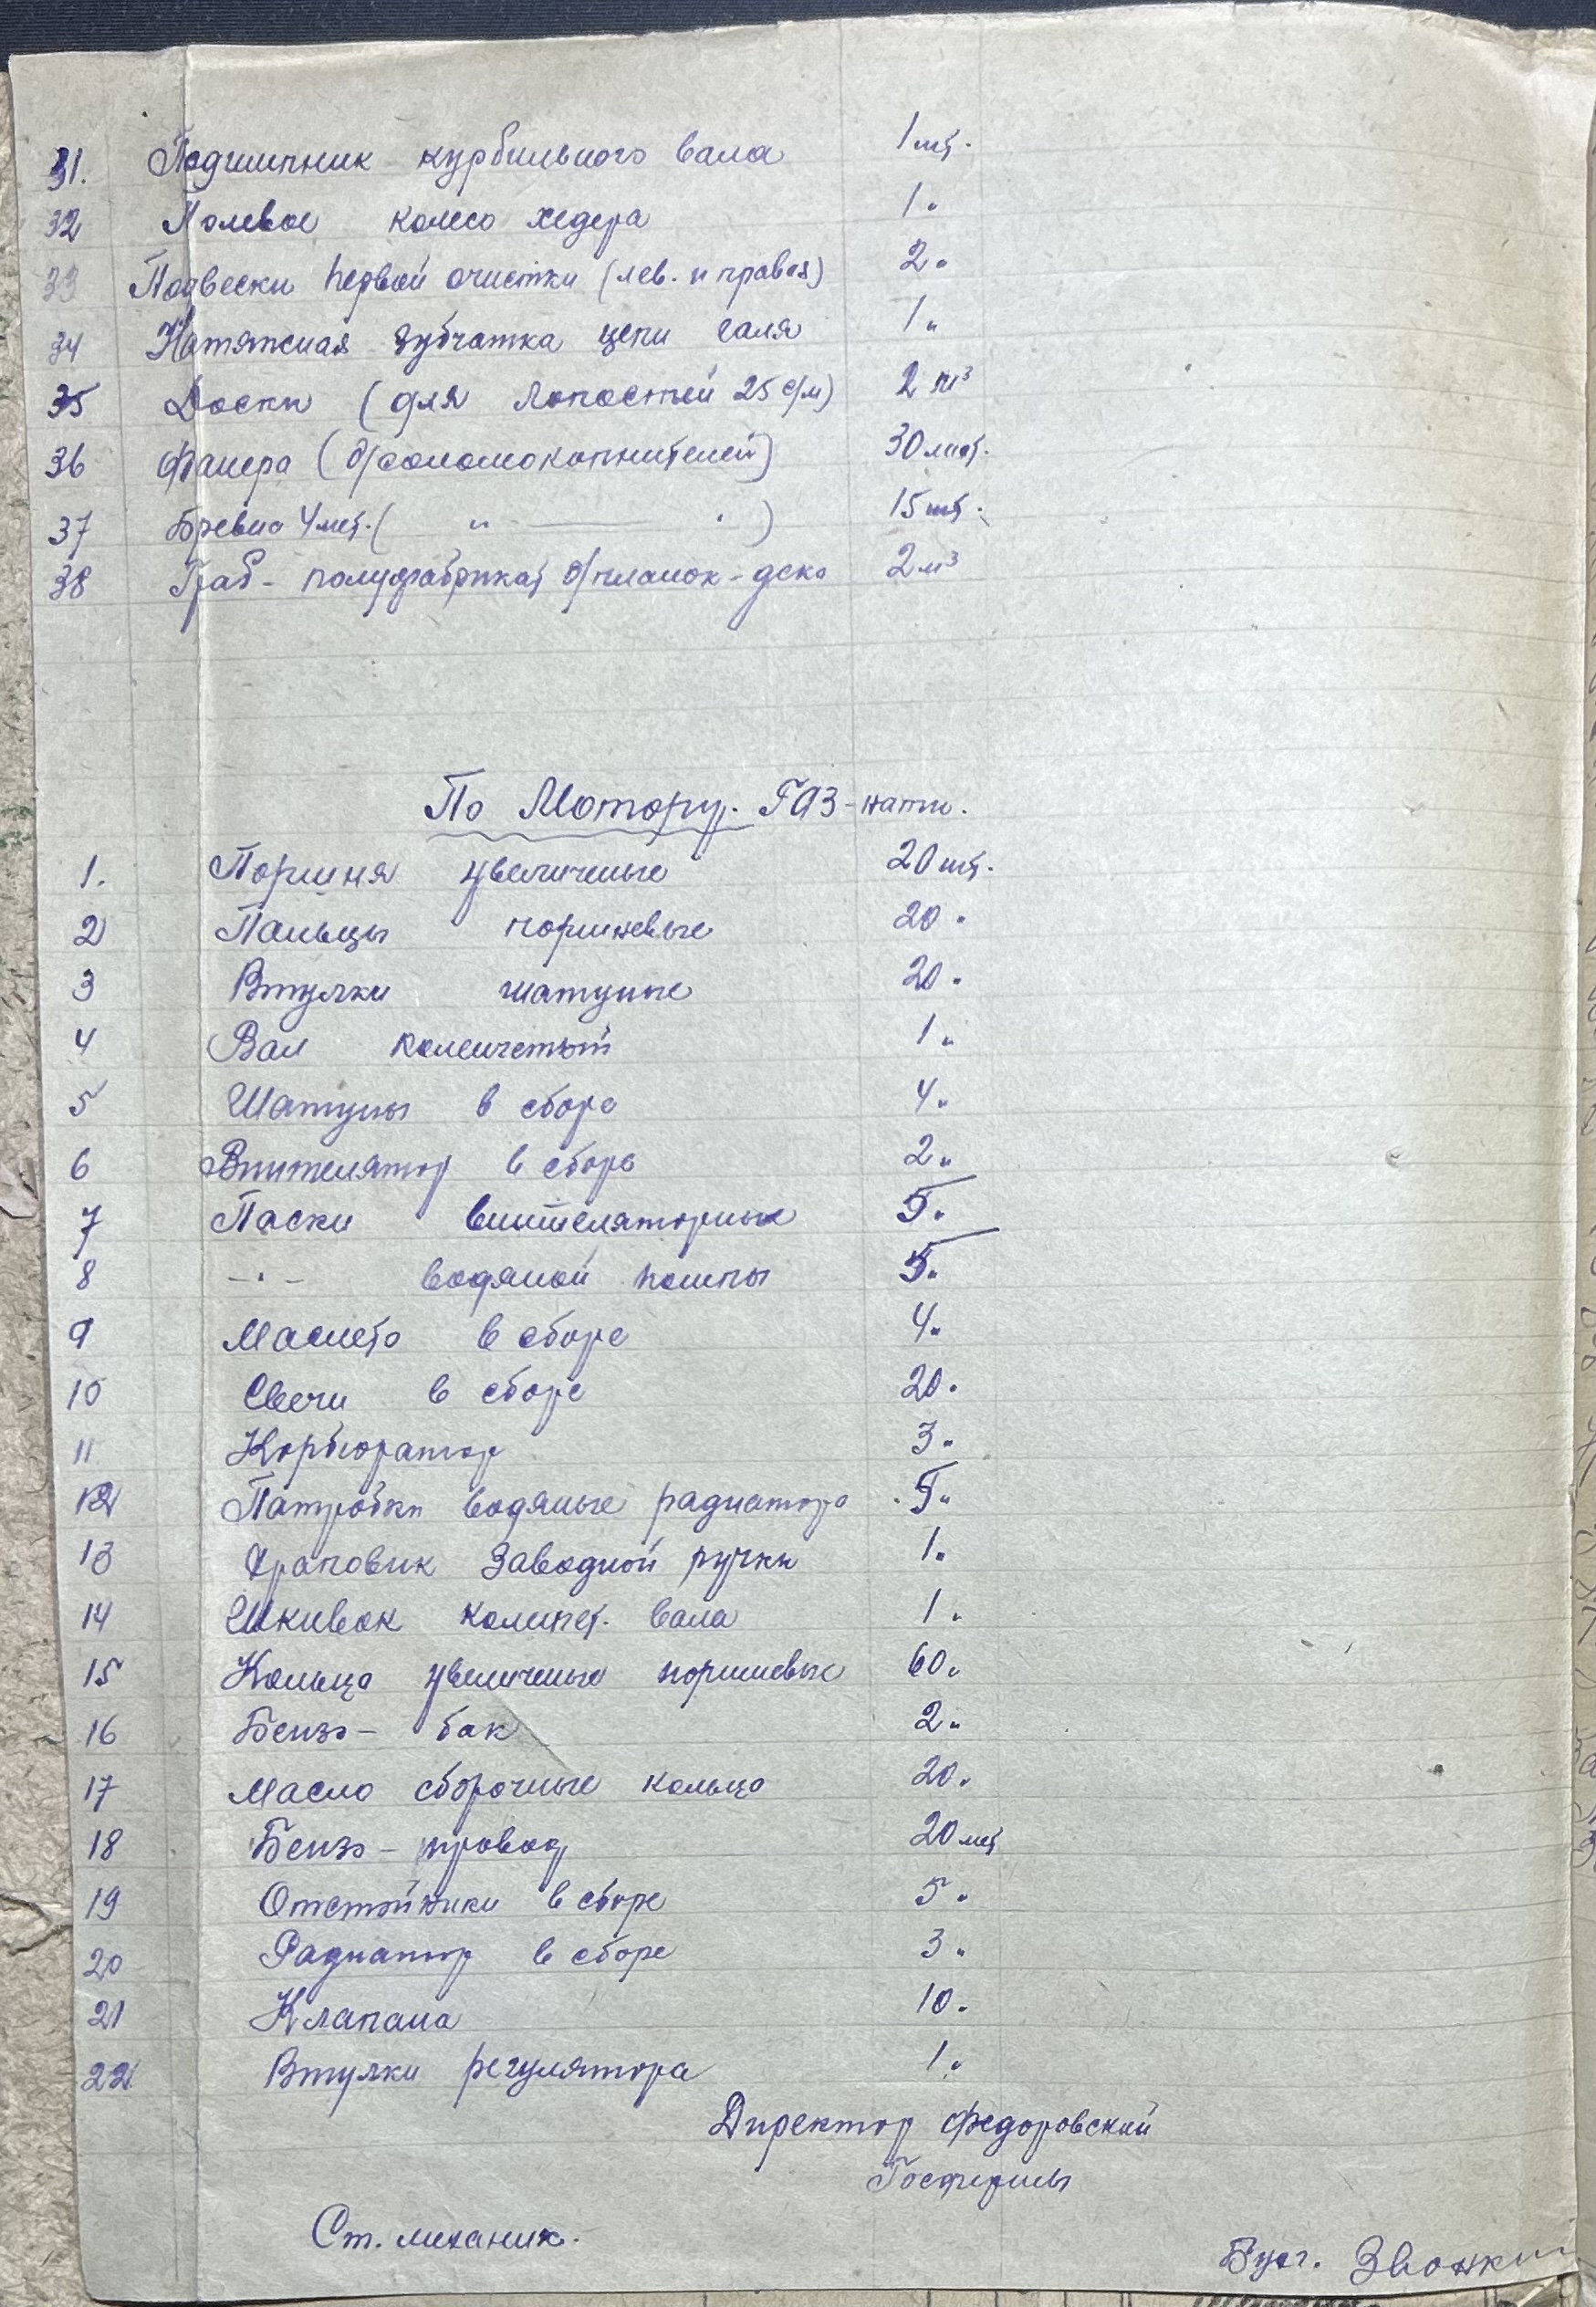 31. Подшипник курбильного вала 1 шт.
32 Полевое колесо хедера 1 "
33 Подвески первой очистки (лев. и правая) 2 "
34 Натяжная зубчатка цепи галя 1 "
35 Доски (для лопостей 25 с/м) 2 м³
36 Фанера (д/соломокопнителей) 30 лист.
37 Бревна 4 мет. ( " — " ) 15 шт.
38 Граб - полуфабрикат д/планок - дека 2 м³
По Мотору. ГАЗ-
1. Поршня увеличеные 20 шт.
2 Пальцы поршневые 20 "
3 Втулки шатуные 20 "
4 Вал коленчетый 1 "
5 Шатуны в сборе 4 "
6 Внтителятор в сборе 2 "
7 Паски винтеляторные 5 "
8 - " - водяной помпы 5 "
9 Магнето в сборе 4 "
10 Свечи в сборе 20 "
11 Корбюратор 3 "
12 Патробки водяные радиатора 5 "
13 Храповик Заводной ручки 1 "
14 Шкивок колинчет. вала 1 "
15 Кольца увеличеные поршневые 60 "
16 Бензо - бак 2 "
17 Масло сборочные кольца 20 "
18 Бензо - провод 20 мет
19 Отстойники в сборе 5 "
20 Радиатор в сборе 3 "
21 Клапана 10 "
22 Втулки регулятора 1 "
Директор Федоровской
Госфермы
Ст. механик.
Бухг. Звонки